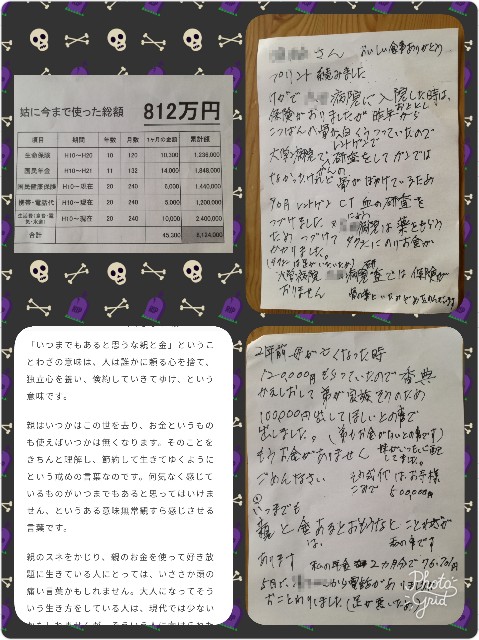 姑に今まで使った総額 812万円
項目 期間 年数 月数 1ヶ月の金額 累計額
生命保険 H10～H20 10 120 10,300 1,236,000
国民年金 H10～H20 11 132 14,000 1,848,000
国民健康保険 H10～現在 20 240 6,000 1,440,000
携帯・電話代 H10～現在 20 240 5,000 1,200,000
生活費 H10～現在 20 240 10,000 2,400,000
合計 45,300 8,124,000
さん おいしい食事ありがとう
プリント読みました
病院に入院した時は、
保険がおりましたが昨年から
こつばんの骨が白くうつっていたので
レントゲンで
大学病院で研査をしてガンでは
なかったけれど骨がぼけているため
レントゲン CT 血の研査を
つづけました。病院は薬をもらう
ため つづけて タクシーにのりお金が
かかりました。
大学病院 病院 研査では保険が
おりません
「いつまでもあると思うな親と金」というこ
とわざの意味は、人は誰かに頼る心を捨て、
独立心を養い、倹約していきてゆけ、という
意味です。
親はいつかはこの世を去り、お金というもの
も使えばいつかは無くなります。そのことを
きちんと理解し、節約して生きてゆくように
という戒めの言葉なのです。何気なく感じて
いるものがいつまでもあると思ってはいけま
せん、というある意味無常観すら感じさせる
言葉です。
親のスネをかじり、親のお金を使って好き放
題に生きている人にとっては、いささか頭の
痛い言葉かもしれません。大人になってそう
いう生き方をしている人は、現代では少ない
2年前 母が亡くなった時
120,000円もらっていたので香典
かえしおして 弟が家族そうのため
100,000円出してほしいとの事で
出しました。(弟もお金がないとの事です)
もうお金がありません
ごめんなさい
500,000円
いつまでも
親と金あるとおもうなと こと状が
は、私の事です
あります 私の年金 2ヵ月分で76,701円
5月に から電話がありましたが
おことわりしました(足が悪いため)
Photo
Grid